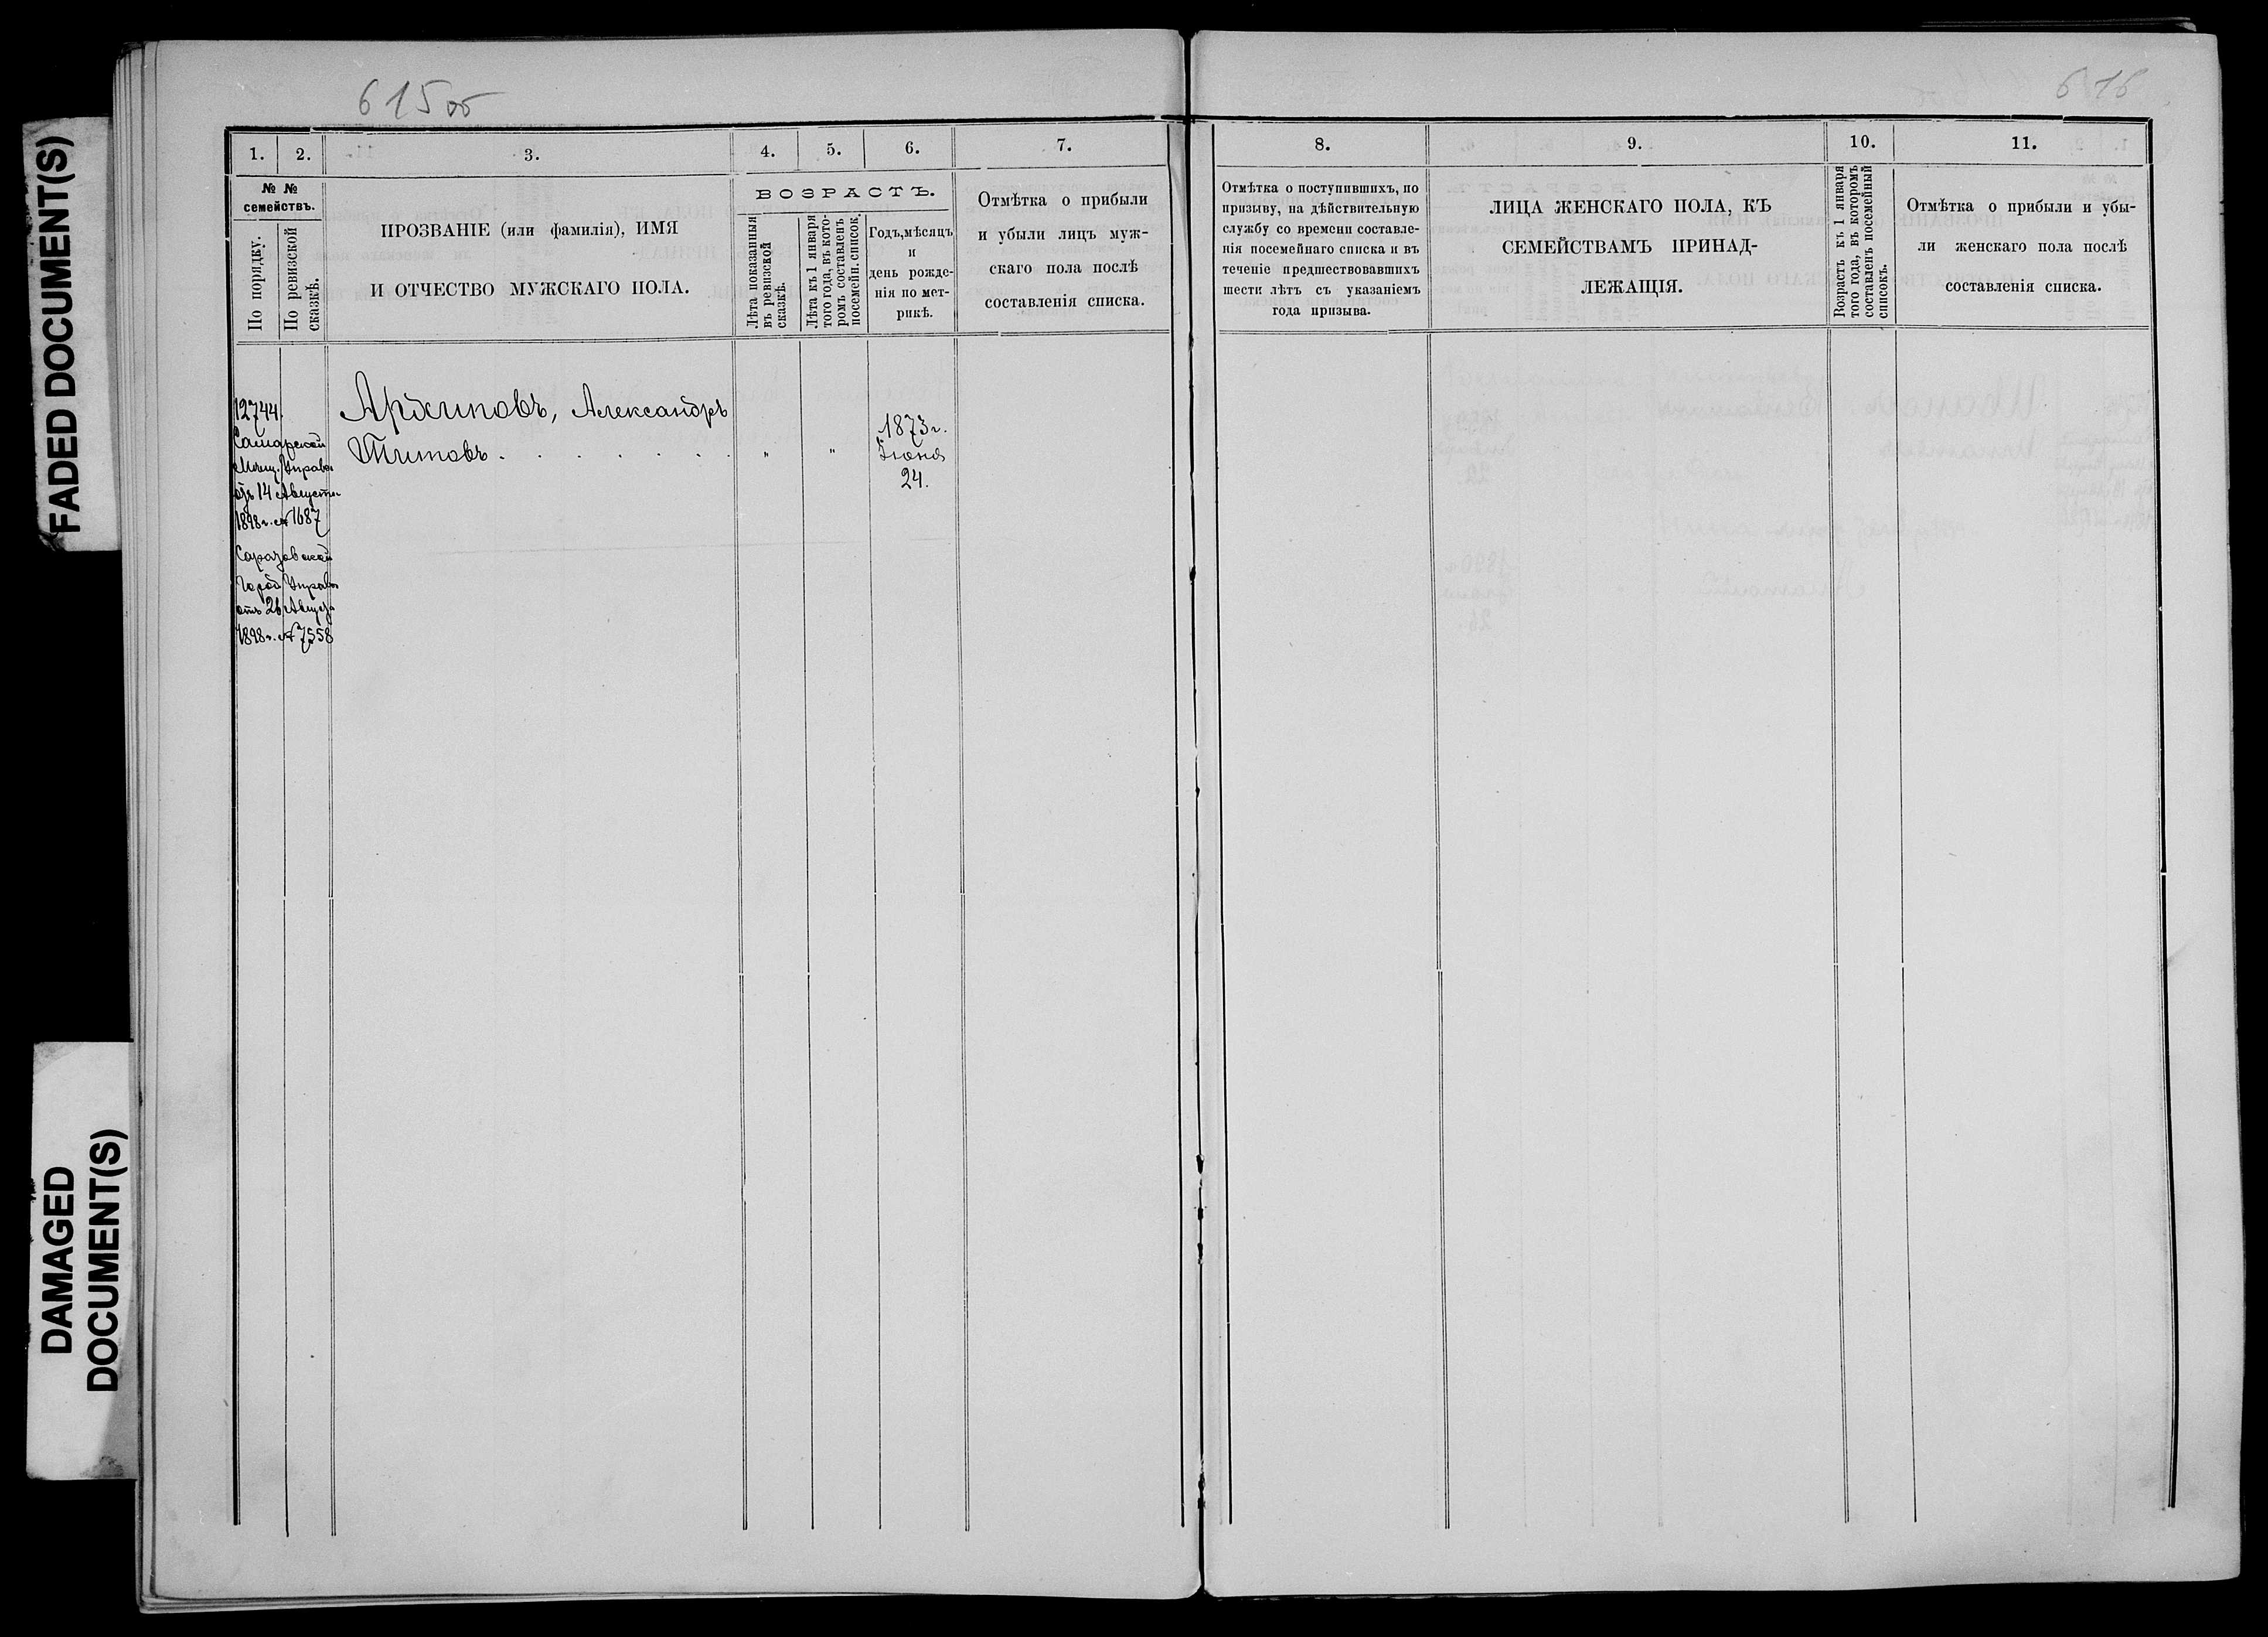 FADED DOCUMENT(S)
DAMAGED
DOCUMENT(S)
615 об
1. 2. 3. 4. 5. 6. 7.
№ №
семействъ.
По порядку.
По ревизской
сказкѣ.
ПРОЗВАНІЕ (или фамилія), ИМЯ
И ОТЧЕСТВО МУЖСКАГО ПОЛА.
ВОЗРАСТЪ.
Лѣта показанныя
въ ревизской
сказкѣ.
Лѣта къ 1 января
того года, въ кото-
ромъ составленъ
посемейн. список.
Годъ, мѣсяцъ
и
день рожде-
нія по мет-
рикѣ.
Отмѣтка о прибыли
и убыли лицъ муж-
скаго пола послѣ
составленія списка.
12744.
Самарской
Мѣщ. Управы
отъ 14 Августа
1898 г. № 1687
Городской
Управы
отъ 26 Августа
1898 г. № 7558
Архиповъ, Александръ
Титовъ . . . . . . . " "
1873 г.
Іюня
24.
616
8. 9. 10. 11.
Отмѣтка о поступившихъ, по
призыву, на дѣйствительную
службу со времени составле-
нія посемейнаго списка и въ
теченіе предшествовавшихъ
шести лѣтъ съ указаніемъ
года призыва.
ЛИЦА ЖЕНСКАГО ПОЛА, КЪ
СЕМЕЙСТВАМЪ ПРИНАД-
ЛЕЖАЩІЯ.
Возрастъ къ 1 января
того года, въ которомъ
составленъ посемейный
списокъ.
Отмѣтка о прибыли и убы-
ли женскаго пола послѣ
составленія списка.